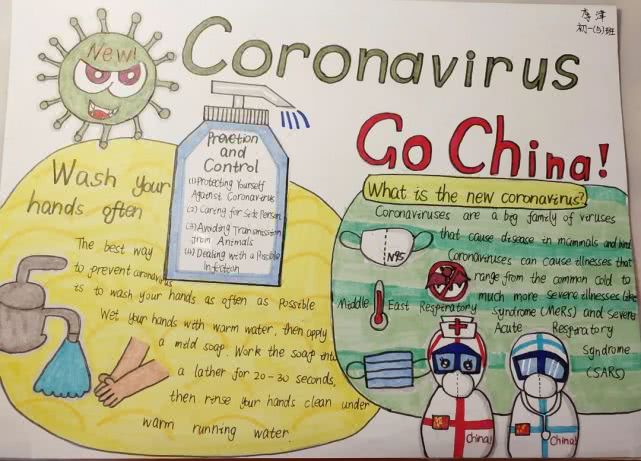 初一(5)班
New!
Coronavirus
Go China!
Prevetion
and
Control
(1) Protecting Yourself
Against Coronavirus
(2) Caring for Sick Person
(3) Avoiding Transmission
from Animals
(4) Dealing with a Possible
Infection
Wash your
hands often
The best way
to prevent
is to wash your hands as often as possible
Wet your hands with warm water, then apply
a mild soap. Work the soap into
a lather for 20-30 seconds,
then rinse your hands clean under
warm running water.
What is the new coronavirus?
Coronaviruses are a big family of viruses
that cause disease in mammals and
Coronaviruses can cause illnesses that
range from the common cold to
much more severe illnesses like
Middle East Respiratory Syndrome (MERS) and Severe
Acute Respiratory
Syndrome
(SARS)
N95
China!
China!